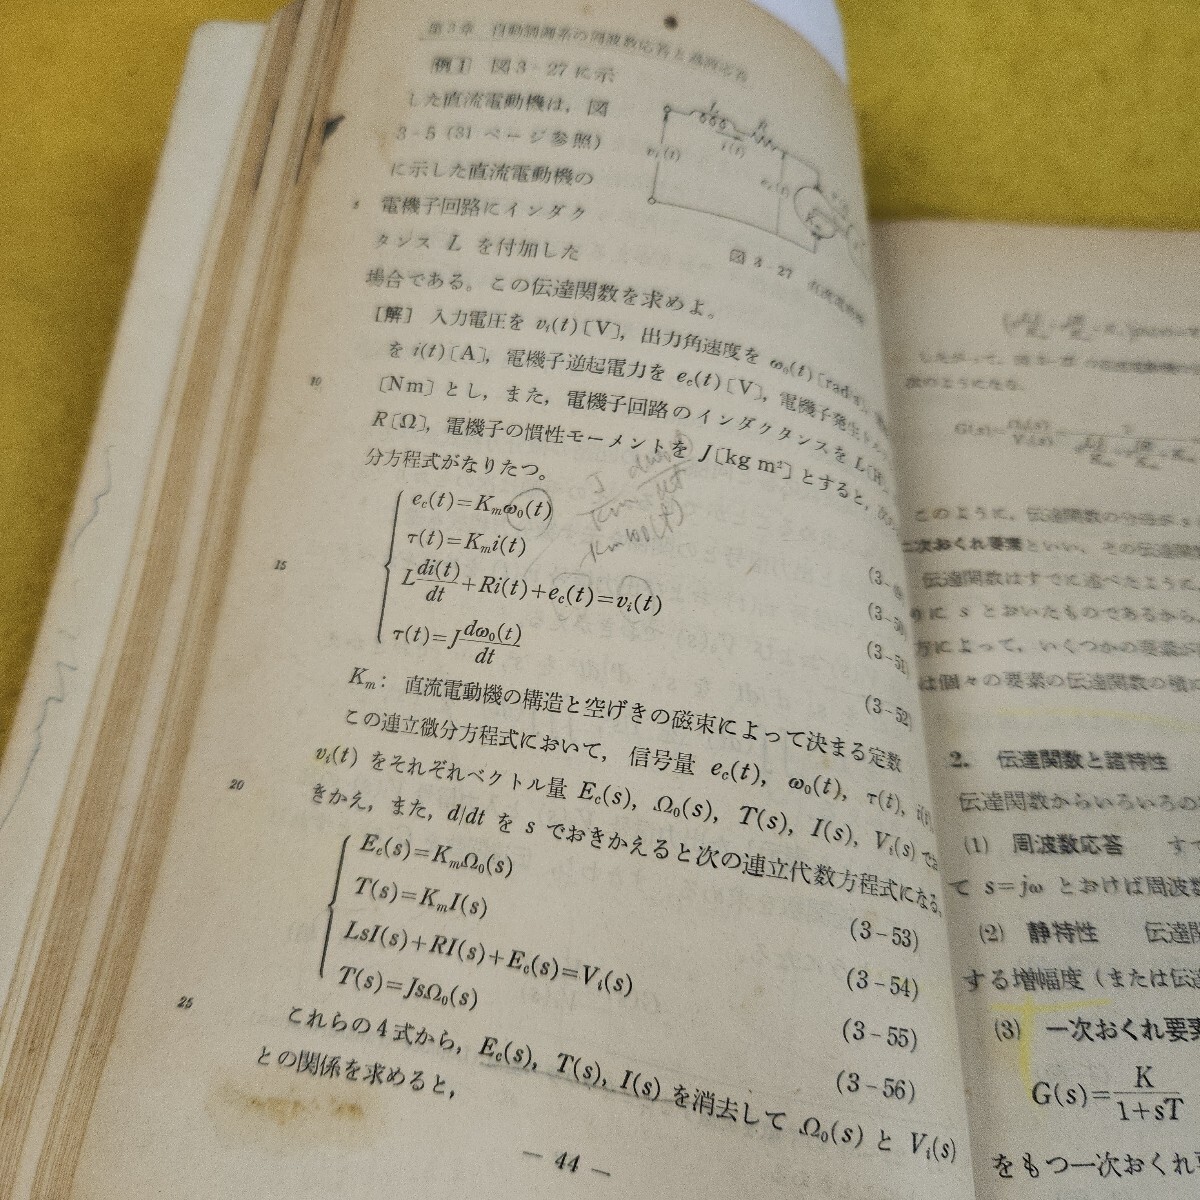 第3章 自動制御系の周波数応答と過渡応答
例1 図3-27に示
した直流電動機は，図
3-5 (31 ページ参照)
に示した直流電動機の
5 電機子回路にインダク
タンス L を付加した
場合である。この伝達関数を求めよ。
L
R
i(t)
vi(t)
ec(t)
Km
図 3-27 直流電動機
[解] 入力電圧を vi(t)[V]，出力角速度を ω0(t)[rad/s]，
を i(t)[A]，電機子逆起電力を ec(t)[V]，電機子発生トルク
10 [Nm] とし，また，電機子回路のインダクタンスを L[H]，
R[Ω]，電機子の慣性モーメントを J[kg m²] とすると，
分方程式がなりたつ。
ec(t)=Kmω0(t)
τ(t)=Kmi(t)
15 L di(t)/dt +Ri(t)+ec(t)=vi(t)
(3-50)
τ(t)=J dω0(t)/dt
(3-51)
(3-52)
J/Km dω0/dt
Kmω0(t)
Km: 直流電動機の構造と空げきの磁束によって決まる定数
この連立微分方程式において，信号量 ec(t)，ω0(t)，τ(t)，i(t)，
20 vi(t) をそれぞれベクトル量 Ec(s)，Ω0(s)，T(s)，I(s)，Vi(s) でお
きかえ，また，d/dt を s でおきかえると次の連立代数方程式になる。
Ec(s)=KmΩ0(s) (3-53)
T(s)=KmI(s) (3-54)
LsI(s)+RI(s)+Ec(s)=Vi(s) (3-55)
T(s)=JsΩ0(s) (3-56)
25 これらの4式から，Ec(s)，T(s)，I(s) を消去して Ω0(s) と Vi(s)
との関係を求めると，
— 44 —
したがって，図3-27
次のようになる。
G(s)=Ω0(s)/Vi(s)=
このように，伝達関数の分母が s
二次おくれ要素といい，その伝達関数
伝達関数はすでに述べたように
に s とおいたものであるから，
方によって，いくつかの要素が
は個々の要素の伝達関数の積に
2. 伝達関数と諸特性
伝達関数からいろいろの
(1) 周波数応答 すで
て s=jω とおけば周波数
(2) 静特性 伝達関
する増幅度 (または伝達
(3) 一次おくれ要素
G(s)= K/1+sT
をもつ一次おくれ要